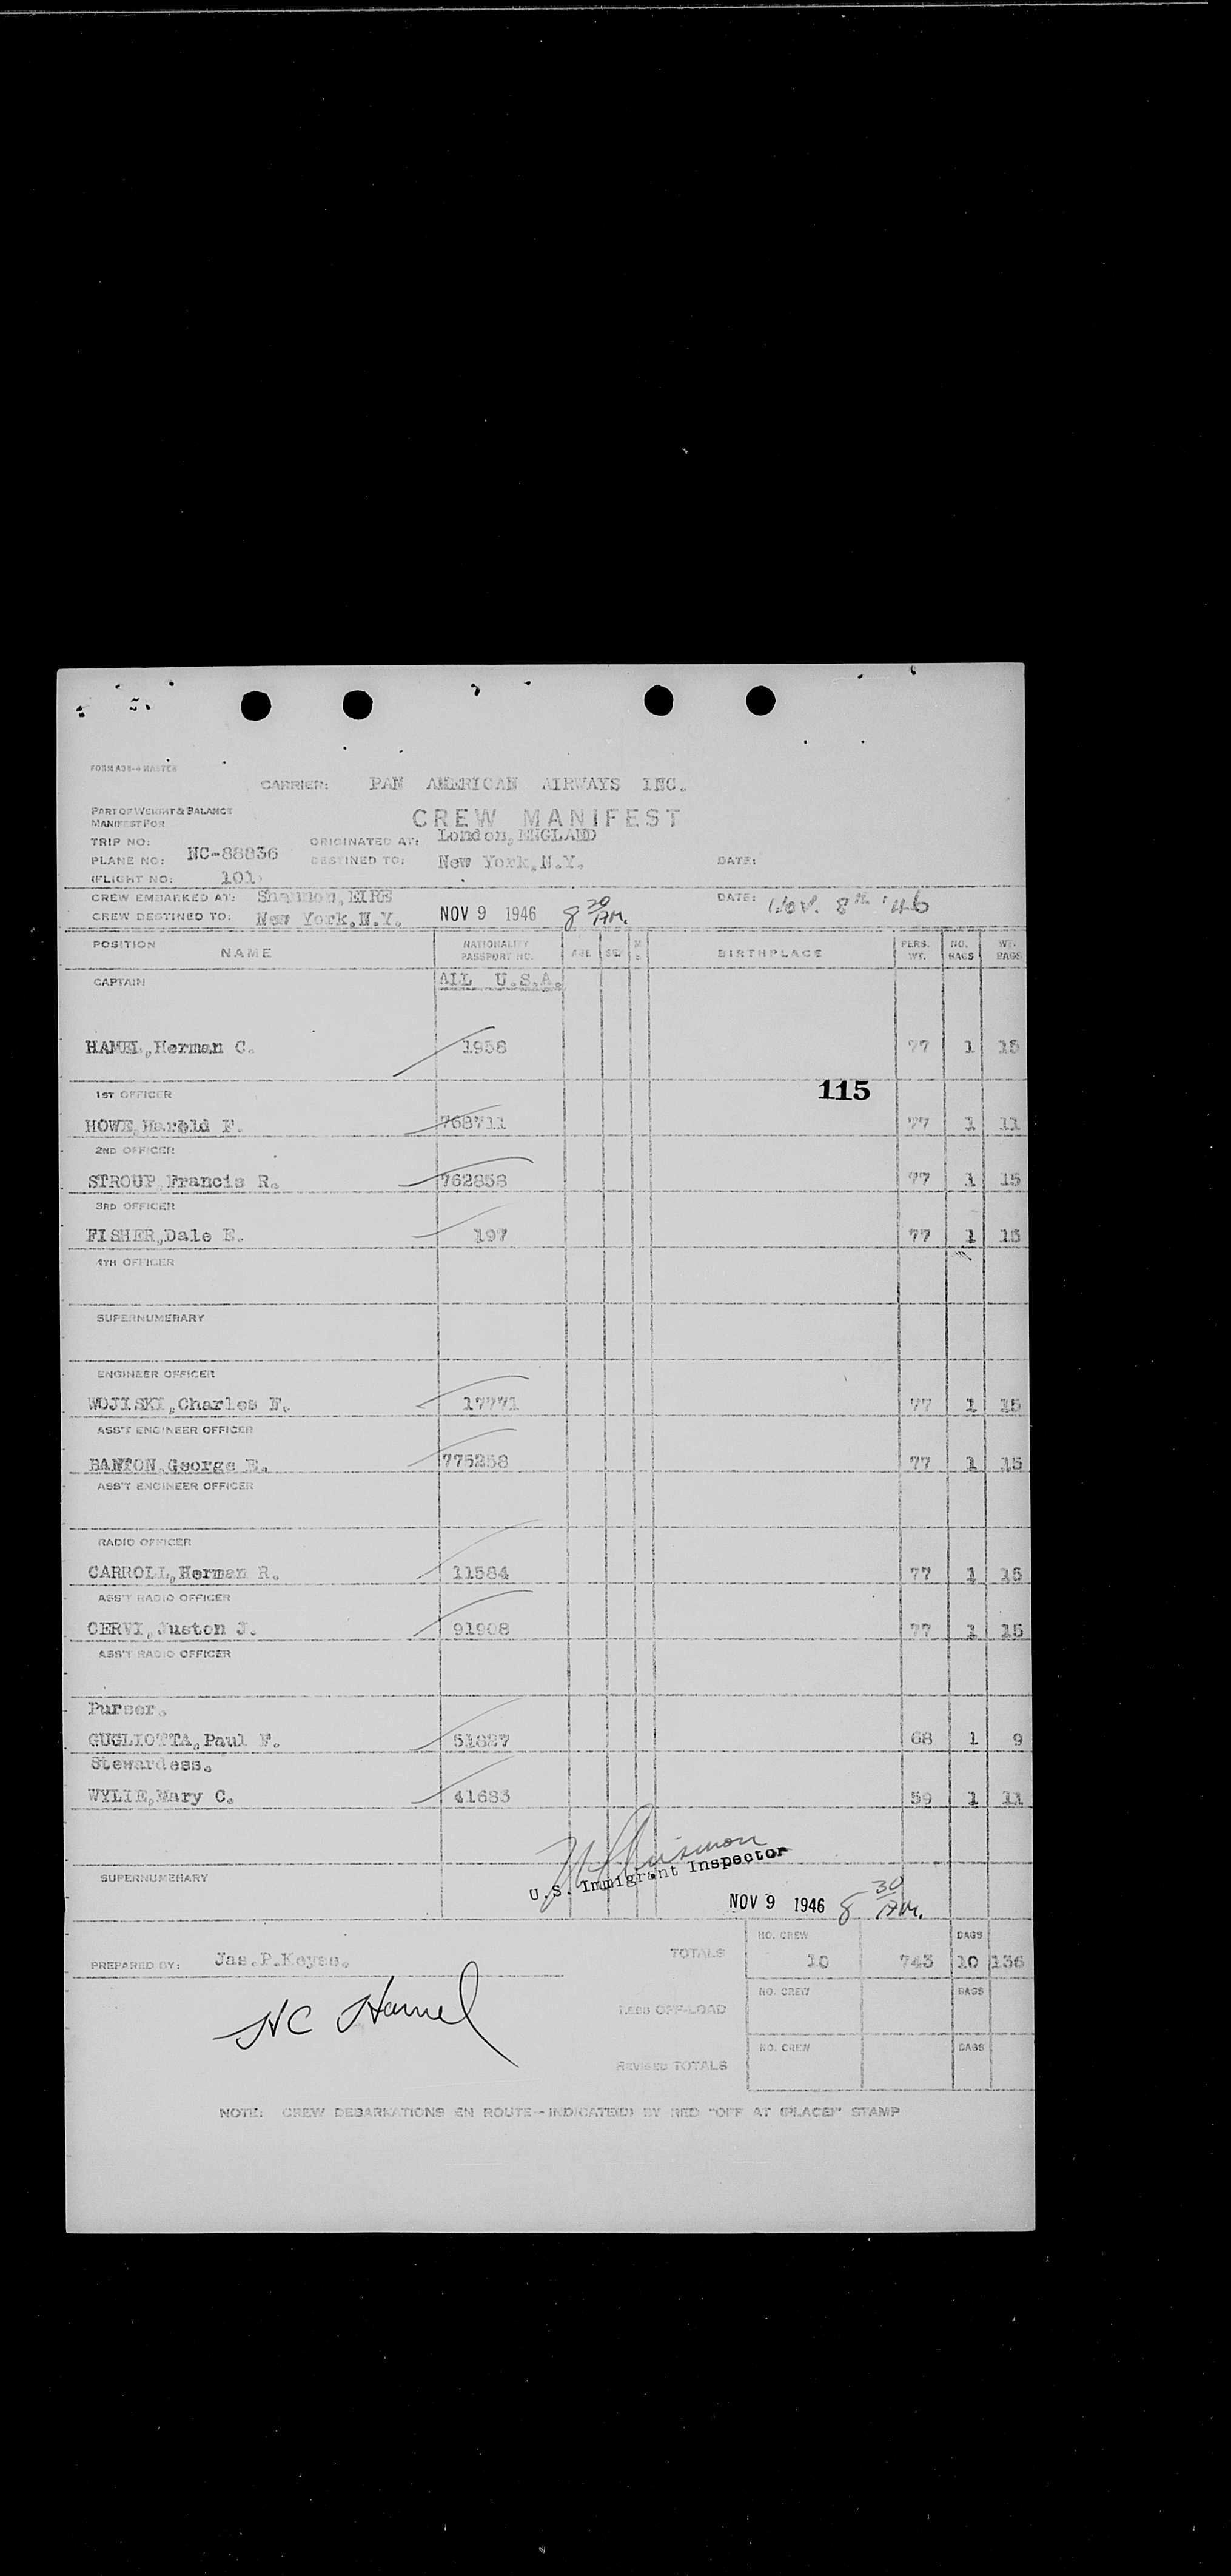 FORM ABB-4 MASTER
CARRIER: PAN AMERICAN AIRWAYS INC.
PART OF WEIGHT & BALANCE
MANIFEST FOR
CREW MANIFEST
TRIP NO: ORIGINATED AT: London, ENGLAND
PLANE NO: NC-88836 DESTINED TO: New York, N.Y. DATE:
(FLIGHT NO: 101)
CREW EMBARKED AT: Shannon, EIRE DATE: Nov. 8th '46
CREW DESTINED TO: New York, N.Y. NOV 9 1946 8 30 AM.
POSITION NAME NATIONALITY PASSPORT NO. AGE SEX M S BIRTHPLACE PERS. WT. NO. BAGS WT. BAGS
CAPTAIN ALL U.S.A.
HAMEL, Herman C. 1958 77 1 15
115
1ST OFFICER
HOWE, Harold F. 768711 77 1 11
2ND OFFICER
STROUP, Francis R. 762858 77 1 15
3RD OFFICER
FISHER, Dale E. 197 77 1 15
4TH OFFICER
SUPERNUMERARY
ENGINEER OFFICER
WOJISKI, Charles F. 17771 77 1 15
ASS'T ENGINEER OFFICER
BANTON, George E. 775258 77 1 15
ASS'T ENGINEER OFFICER
RADIO OFFICER
CARROLL, Herman R. 11584 77 1 15
ASS'T RADIO OFFICER
CERVI, Juston J. 91908 77 1 15
ASS'T RADIO OFFICER
Purser.
GUGLIOTTA, Paul F. 51887 68 1 9
Stewardess.
WYLIE, Mary C. 41683 59 1 11
U.S. Immigrant Inspector
SUPERNUMERARY
NOV 9 1946 8 30 AM.
NO. CREW BAGS
PREPARED BY: Jas. P. Keyse. TOTALS 10 743 10 136
NO. CREW BAGS
HC Hamel LESS OFF-LOAD
NO. CREW BAGS
REVISED TOTALS
NOTE: CREW DEBARKATIONS EN ROUTE--INDICATE(D) BY RED "OFF AT (PLACE)" STAMP